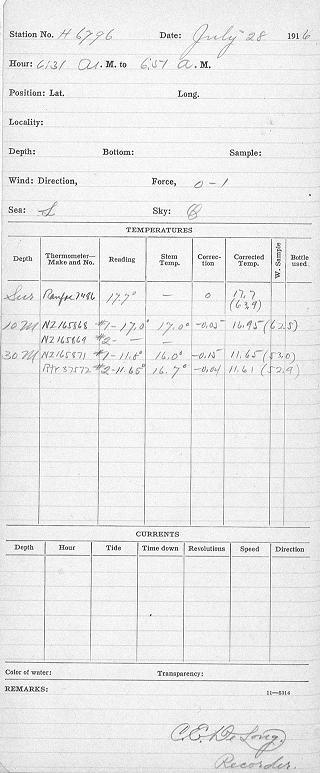 Station No. H 6796 Date: July 28 1916
Hour: 6:31 A. M. to 6:51 A. M.
Position: Lat. Long.
Locality:
Depth: Bottom: Sample:
Wind: Direction, Force, 0-1
Sea: S Sky:
TEMPERATURES
Depth Thermometer—Make and No. Reading Stem Temp. Correction Corrected Temp. W. Sample Bottle used
Sur 7486 17.7° — 0 17.7
(63.9)
10 M NZ165868 #1-17.0° 17.0° -0.05 16.95 (62.5)
NZ165869 #2- — —
30 M NZ165871 #1-11.8° 16.0° -0.15 11.65 (53.0)
37572 #2-11.65° 16.7° -0.04 11.61 (52.9)
CURRENTS
Depth Hour Tide Time down Revolutions Speed Direction
Color of water: Transparency:
REMARKS: 11—5314
C. E. De Long,
Recorder.